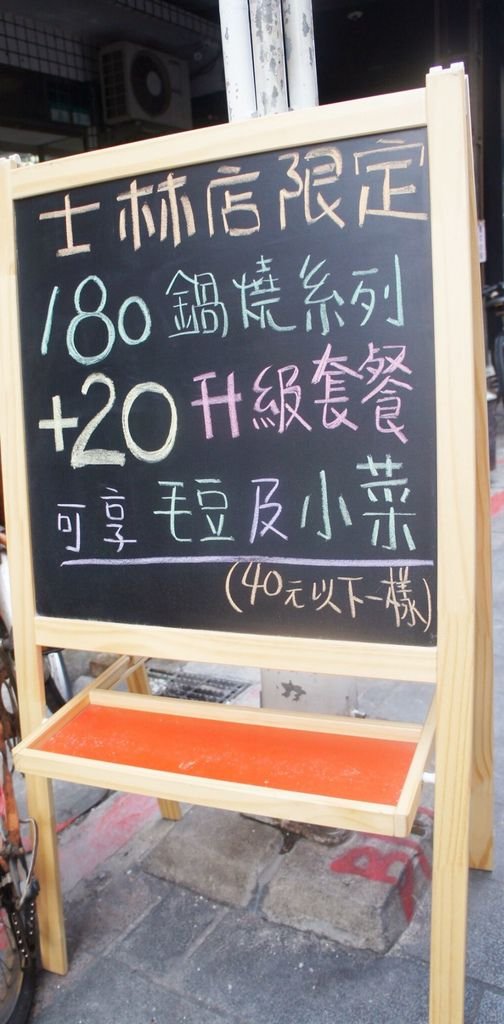 士林店限定
180 鍋燒系列
+20 升級套餐
可享 毛豆及小菜
(40元以下一樣)